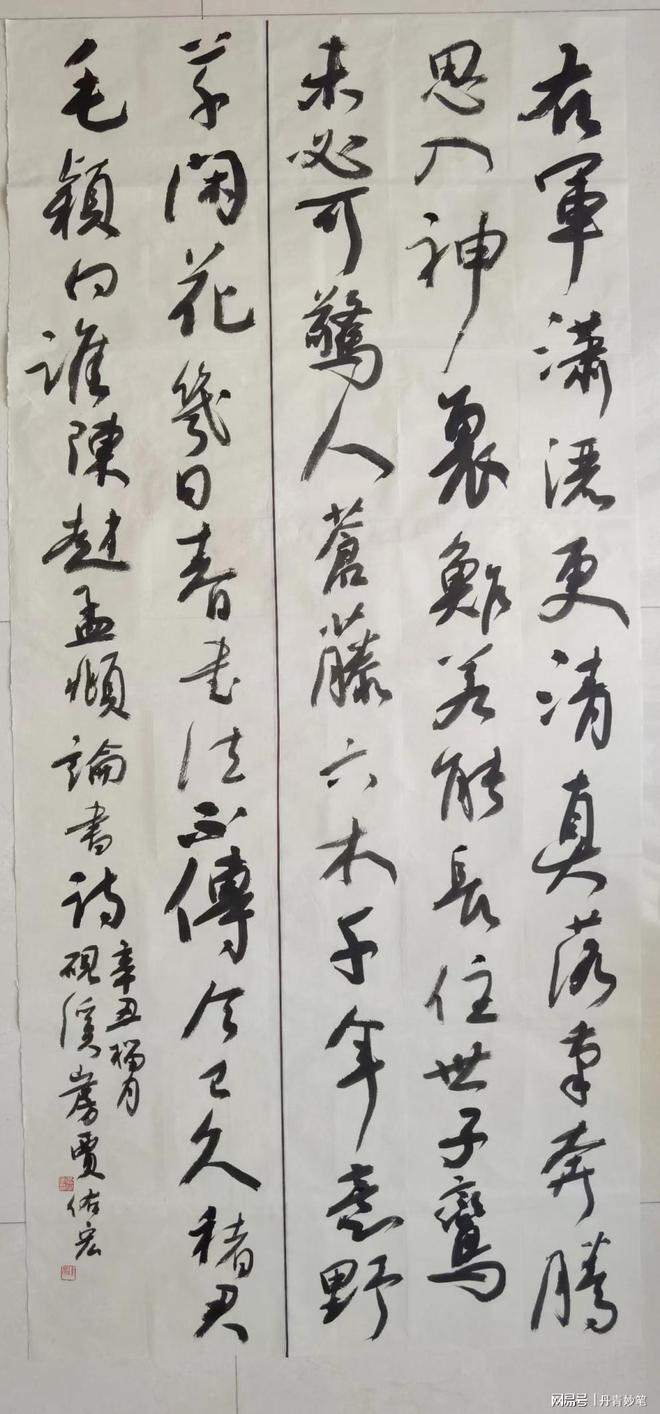 右軍瀟洒更清真落筆奔騰
思入神裹鮓若能長住世子鸞
未必可驚人蒼藤古木千年意野
草閑花幾日春書法不傳今已久楮君
毛穎向誰陳趙孟頫論書詩
辛丑榴月
硯溪賈佑宏
网易号 | 丹青妙笔